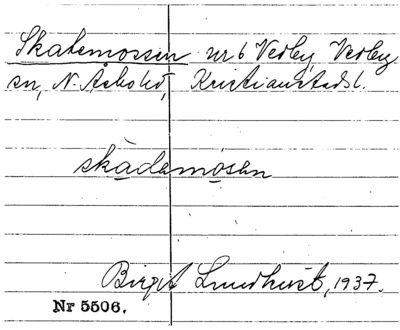 Skatemossen nr 6 Verby, Verby
sn, N. Åsbo hd, Kristianstads l.
skàdemòsen
Birgit Lundhvist, 1937.
Nr 5506.